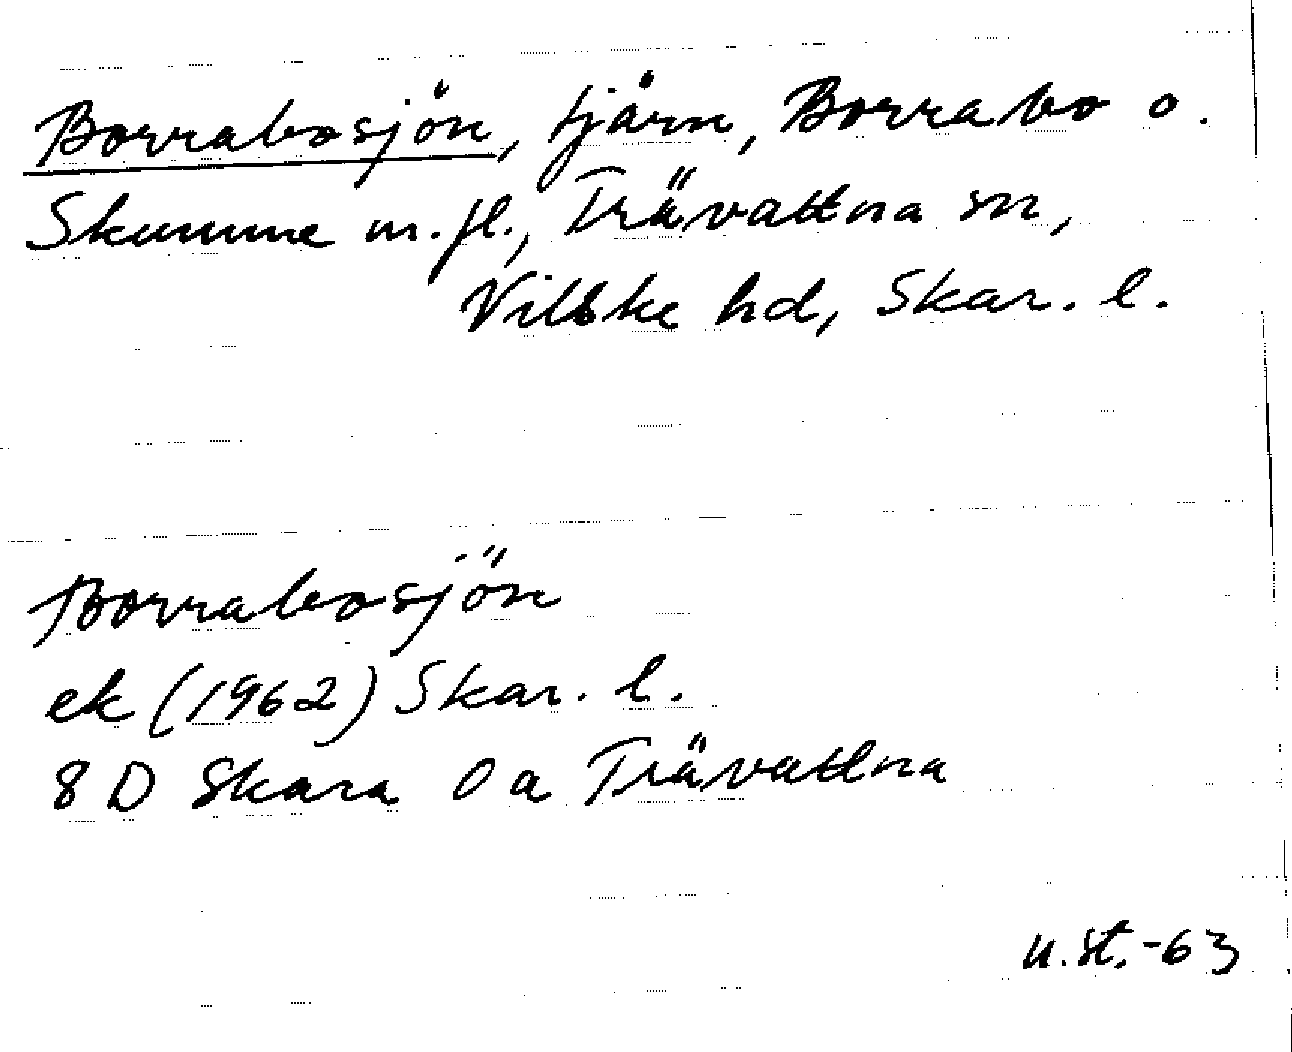 Borrabosjön, tjärn, Borrabo o.
Skumme m.fl., Trävattna sn,
Vilske hd, Skar. l.
Borrabosjön
ek (1962) Skar. l.
8 D Skara 0 a Trävattna
u.st.-63